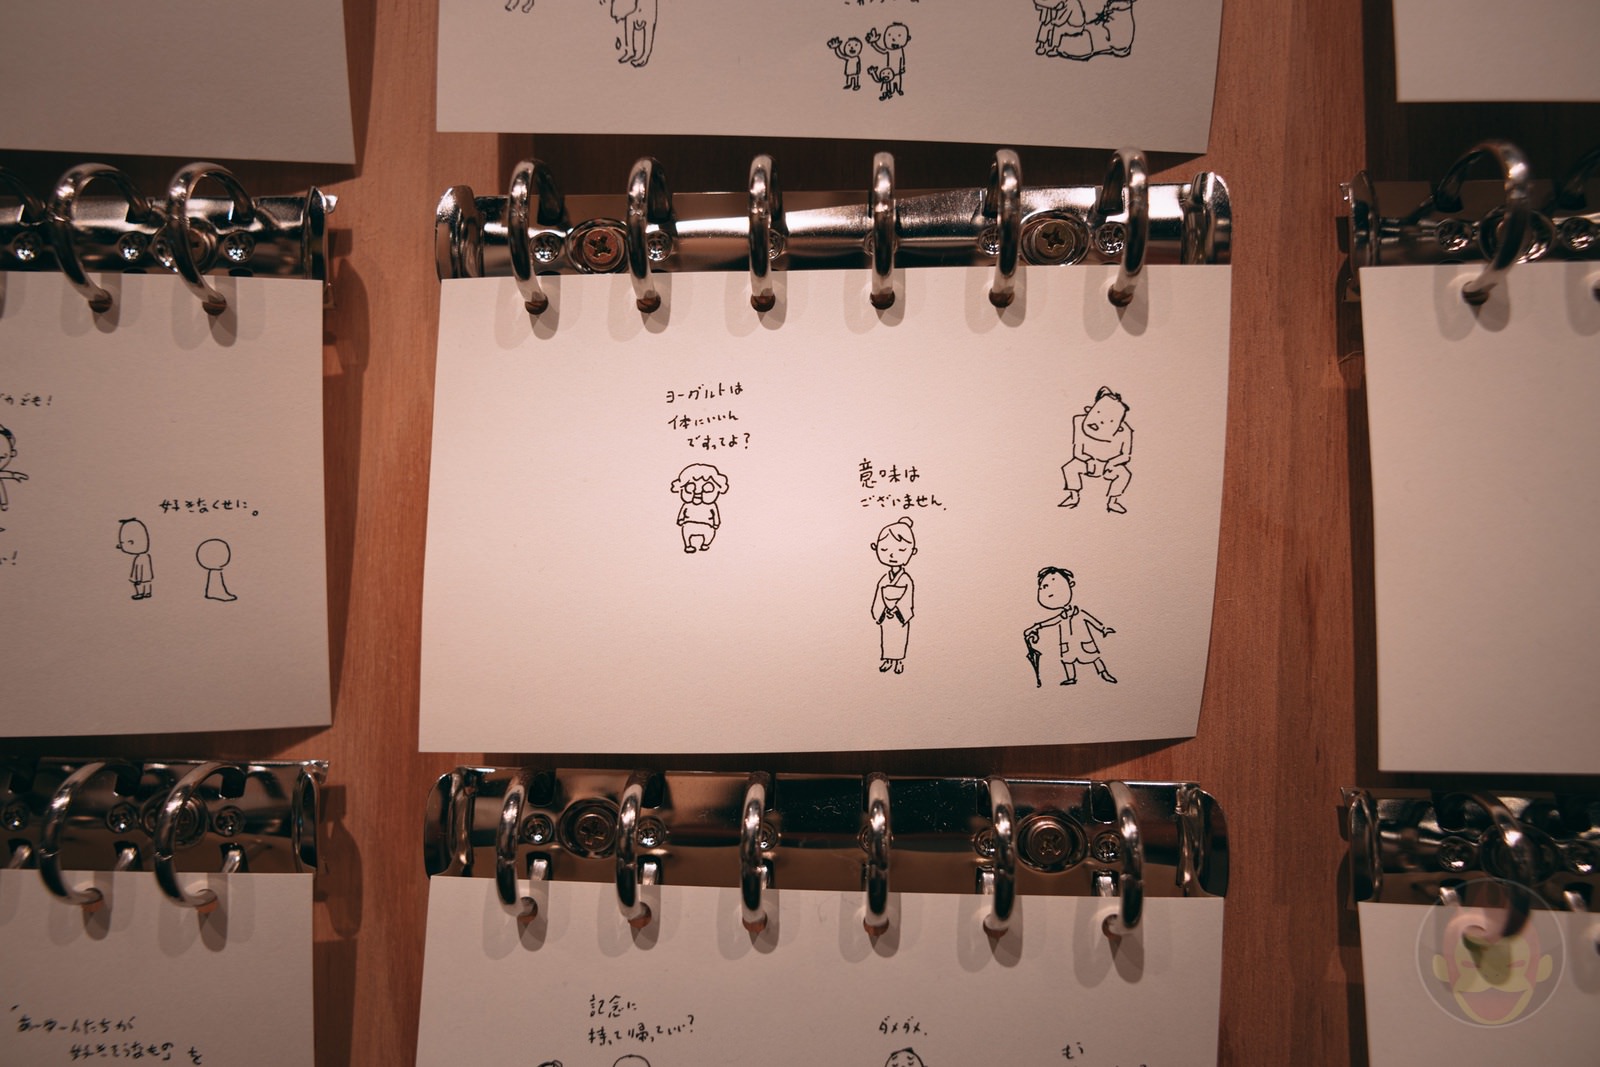 ヨーグルトは
体にいいん
ですってよ?
意味は
ございません.
好きなくせに。
記念に
持って帰っていい?
ダメダメ.
もう
好きそうなもの を